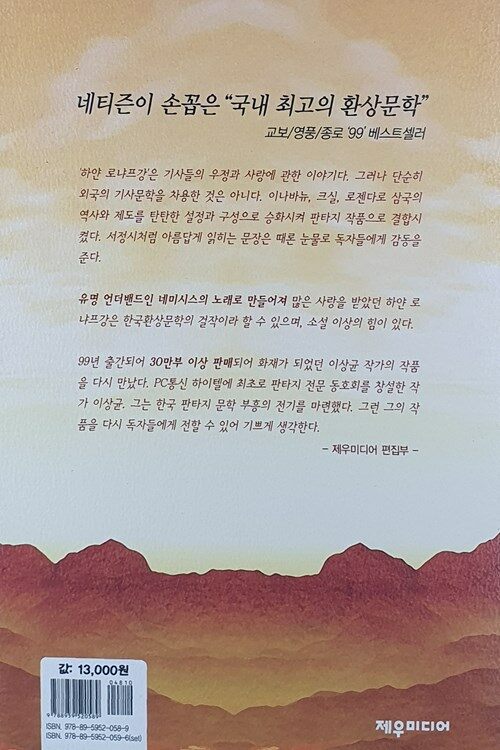 네티즌이 손꼽은 “국내 최고의 환상문학”
교보/영풍/종로 '99' 베스트셀러
'하얀 로냐프강'은 기사들의 우정과 사랑에 관한 이야기다. 그러나 단순히
외국의 기사문학을 차용한 것은 아니다. 이나바뉴, 크실, 로젠다로 삼국의
역사와 제도를 탄탄한 설정과 구성으로 승화시켜 판타지 작품으로 결합시
켰다. 서정시처럼 아름답게 읽히는 문장은 때론 눈물로 독자들에게 감동을
준다.
유명 언더밴드인 네미시스의 노래로 만들어져 많은 사랑을 받았던 하얀 로
냐프강은 한국환상문학의 걸작이라 할 수 있으며, 소설 이상의 힘이 있다.
99년 출간되어 30만부 이상 판매되어 화재가 되었던 이상균 작가의 작품
을 다시 만났다. PC통신 하이텔에 최초로 판타지 전문 동호회를 창설한 작
가 이상균. 그는 한국 판타지 문학 부흥의 전기를 마련했다. 그런 그의 작
품을 다시 독자들에게 전할 수 있어 기쁘게 생각한다.
- 제우미디어 편집부 -
값: 13,000원
04810
9 788959 520589
ISBN. 978-89-5952-058-9
ISBN. 978-89-5952-059-6(set)
제우미디어